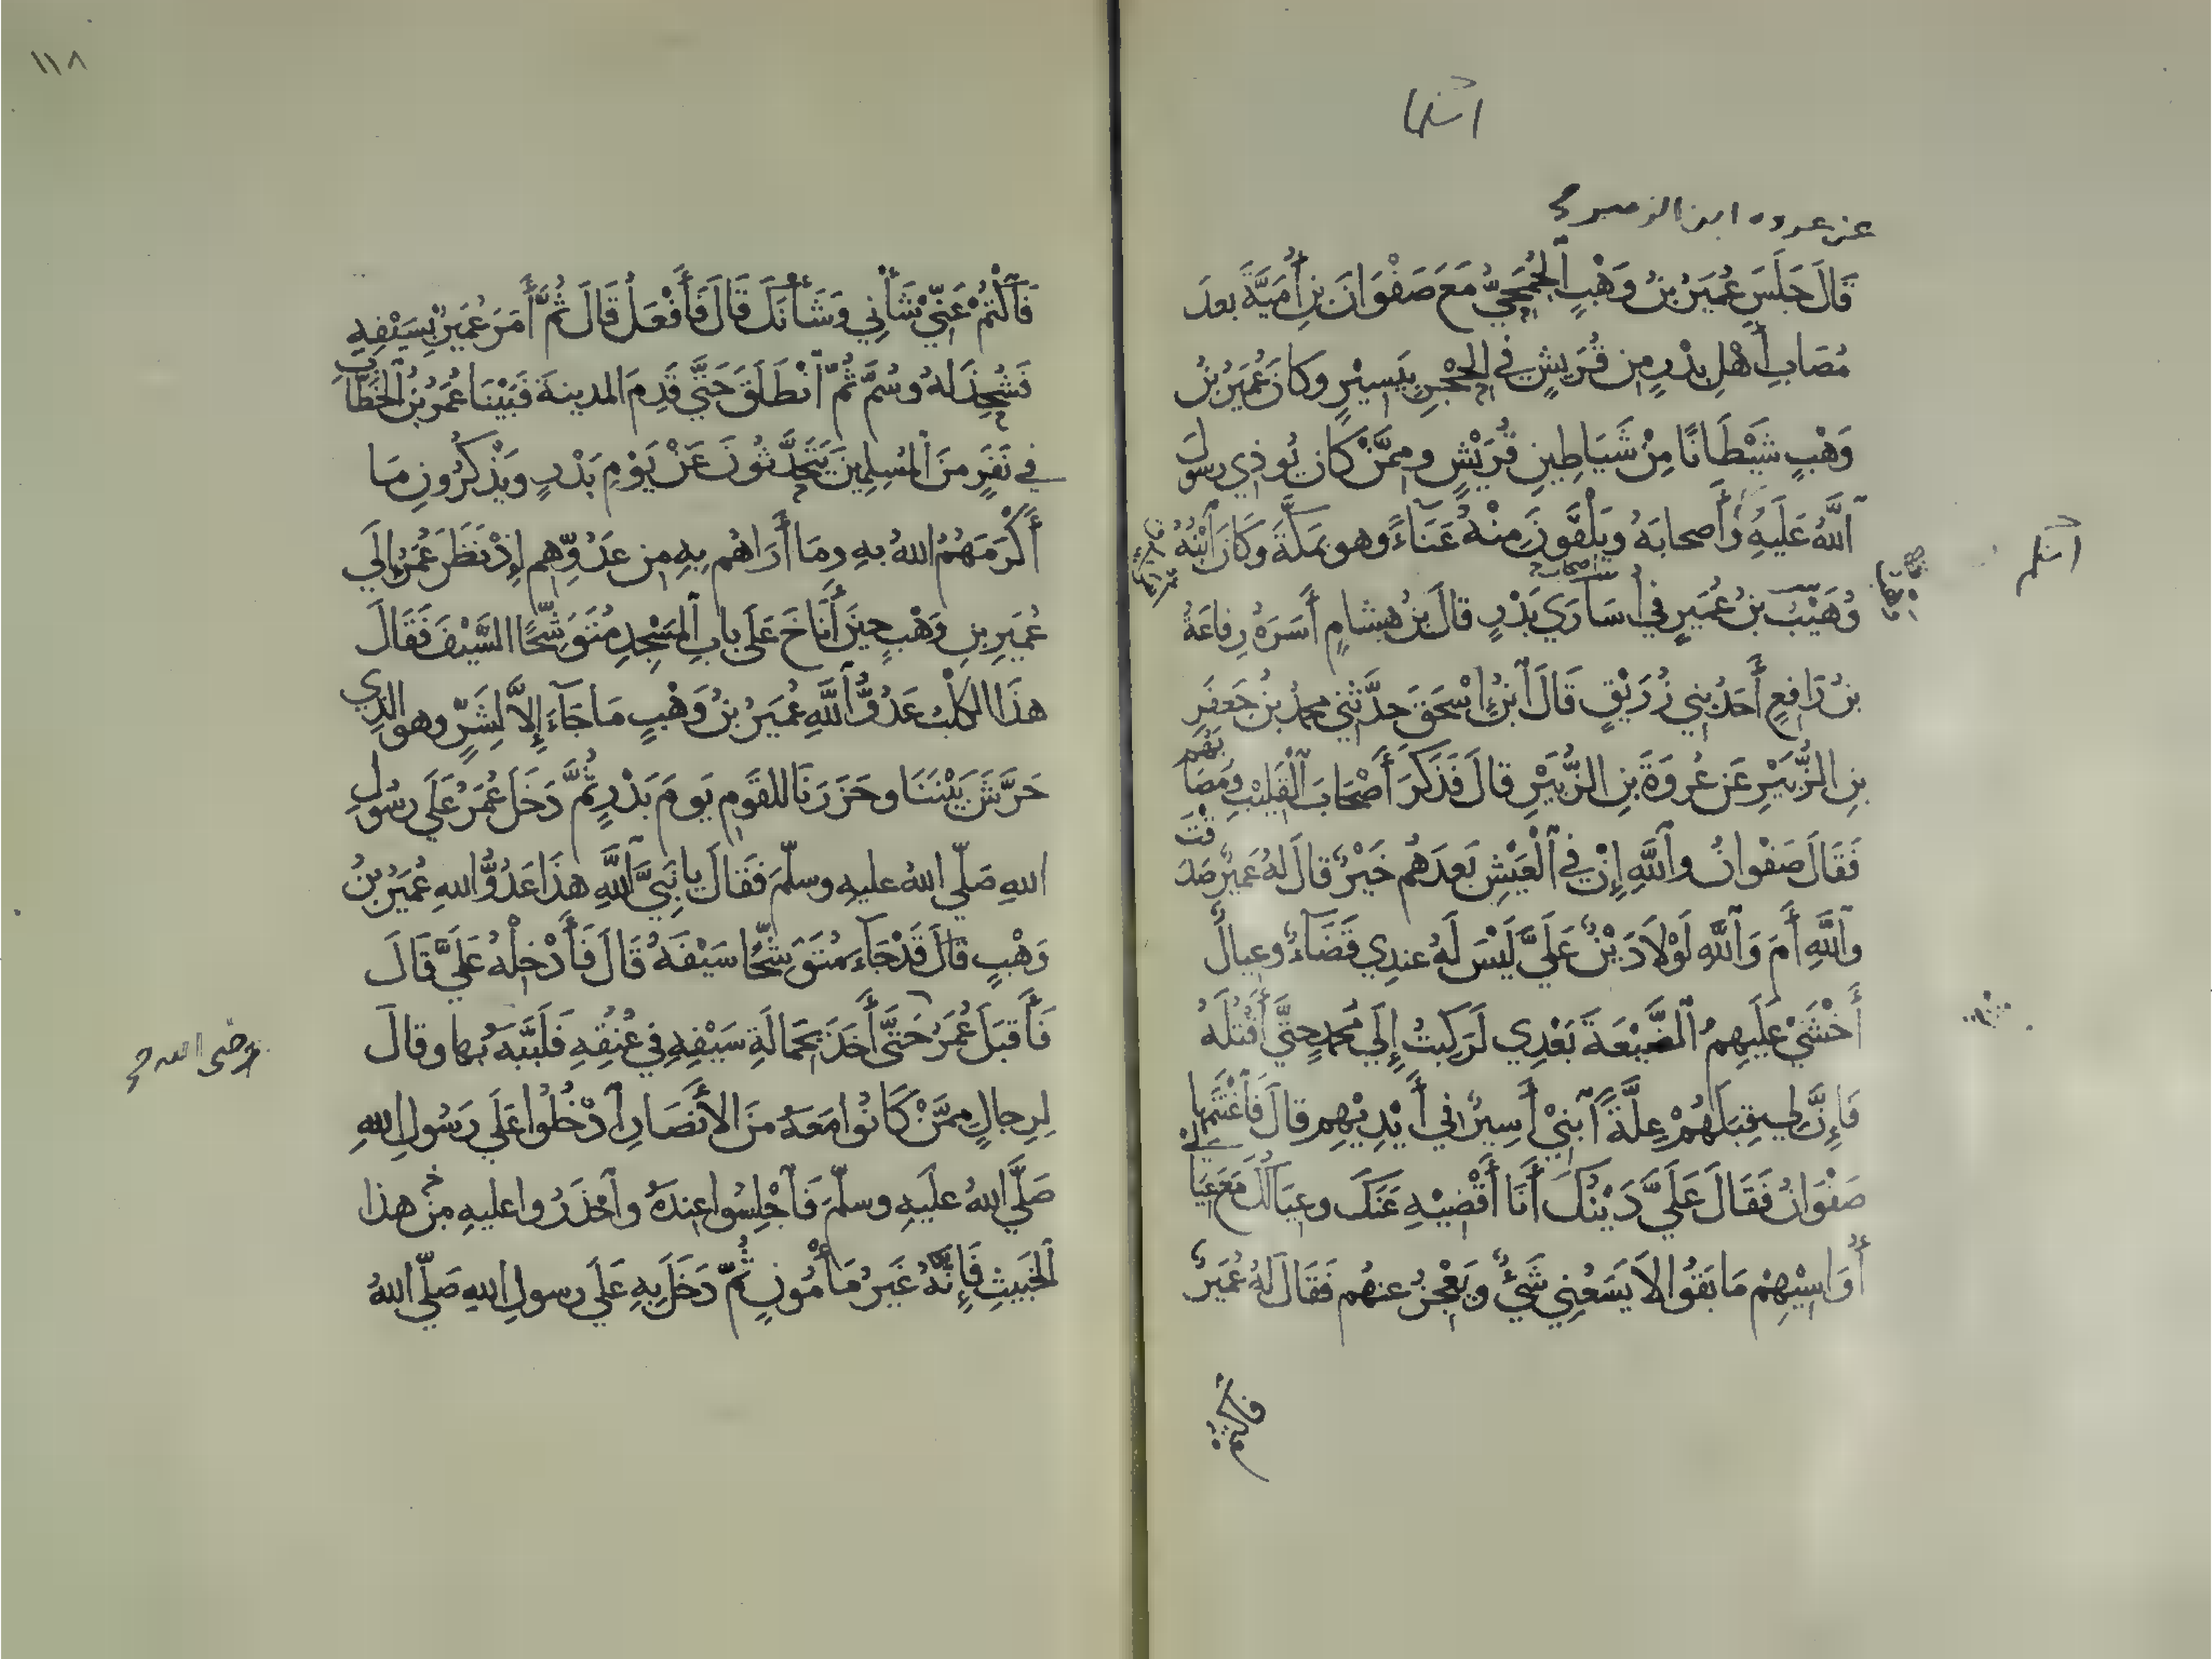 أسلما
عن عروة ابن الزبير
قَالَ جَلَسَ عُمَيْرُ بْنُ وَهْبٍ ٱلْجُمَحِيُّ مَعَ صَفْوَانَ بْنِ أُمَيَّةَ بعدَ
مُصَابِ أَهْلِ بَدْرٍ مِن قُرَيْشٍ فِي الحِجْرِ بِيَسِيْرٍ وكَانَ عُمَيْرُ بْنُ
وَهْبٍ شَيْطَانًا مِنْ شَيَاطِينِ قُرَيْشٍ ومِمَّنْ كَانَ يُوذِي رسولَ
ٱللَّهِ عَلَيْهِ وَأَصحابَهُ ويَلْقَوْنَ مِنْهُ عَنَاءً وهو بمَكَّةَ وَكَانَ ٱبْنُهُ
وُهَيْبُ بنُ عُمَيرٍ فِي أُسَارَي بَدْرٍ قالَ بنُ هِشامٍ أَسَرَهُ رِفاعَةُ
أصحاب
أسلم
بنُ رَافِعٍ أَحَدُ بنِي زُرَيْقٍ قَالَ ٱبنُ إِسْحَقَ حَدَّثَنِي محمدُ بنُ جَعفَرِ
بنِ الزُّبَيْرِ عَن عُروَةَ بنِ الزُّبَيْرِ قالَ فَذَكَرَ أَصْحَابَ ٱلْقَلِيْبِ ومُصَابَهُم
فَقَالَ صَفْوانُ وٱللَّهِ إِنْ فِي ٱلْعَيْشِ بَعدَهُم خَيْرٌ قالَ لهُ عُمَيرٌ صَدَقْتَ
وٱللَّهِ أَمَ وَٱللَّهِ لَوْلاَ دَيْنٌ عَلَيَّ لَيْسَ لَهُ عندِي قَضَاءٌ وعِيالٌ
أَخْشَيْ عَلَيهِمُ ٱلضَّيْعَةَ بَعْدِي لَرَكِبتُ إِلَي مُحمدٍ حَتَّي أَقْتُلَهُ
فَإِنَّ لِي قِبَلَهُمْ عِلَّةً ٱبنِيْ أَسِيرٌ فِي أَيْدِيْهِم قالَ فَٱغْتَنَمَها
صَفْوَانُ فَقَالَ عَلَيَّ دَيْنُكَ أَنَا أَقْضِيْهِ عَنكَ وعِيَالُكَ مَعَ عِيَالِي
أُوَاسِيْهِمْ مَا بَقُوا لاَ يَسَعُنِي شَيْءٌ ويَعْجِزُ عنهُم فَقَالَ لهُ عُمَيرٌ
فاكتم
١١٨
فَٱكْتُمْ عَنِّي شَأْنِي وَشَأْنَكَ قَالَ فَأَفْعَلُ قَالَ ثُمَّ أَمَرَ عُمَيرٌ بِسَيْفِهِ
فَشُحِذَ لهُ وسُمَّ ثُمَّ ٱنْطَلَقَ حَتَّي قَدِمَ المدينةَ فَبَيْنَا عُمَرُ بنُ الخَطَّابِ
في نَفَرٍ مِنَ المُسلِمِينَ يَتَحَدَّثُونَ عَنْ يَوْمِ بَدْرٍ ويَذْكُرُونَ مَا
أَكْرَمَهُمُ اللهُ بهِ ومَا أَرَاهُم بِهِ مِن عَدُوِّهِم إِذْ نَظَرَ عُمَرُ إِلَي
عُمَيرِ بنِ وَهْبٍ حِينَ أَنَاخَ عَلَي بابِ المَسْجِدِ مُتَوَشِّحًا السَّيْفَ فَقَالَ
هذَا الكَلْبُ عَدُوُّ ٱللَّهِ عُمَيرُ بنُ وَهْبٍ مَا جَاءَ إِلاَّ لِشَرٍّ وهو الذِي
حَرَّشَ بَيْنَنَا وحَزَرَنَا للقَومِ يَومَ بَدْرٍ ثُمَّ دَخَلَ عُمَرُ عَلَي رسُولِ
اللهِ صَلّي اللهُ عليهِ وسلّمَ فَقَالَ يا نَبِيَّ ٱللَّهِ هذَا عَدُوُّ اللهِ عُمَيرُ بنُ
وَهْبٍ قالَ قَدْ جَاءَ مُتَوَشِّحًا سَيْفَهُ قَالَ فَأَدْخِلْهُ عَلَيَّ قَالَ
فَأَقبَلَ عُمَرُ حَتَّي أَخَذَ بِحَمالَةِ سَيْفِهِ فِي عُنُقِهِ فَلَبَّبَهُ بها وقالَ
رضي الله
لِرِجالٍ مِمَّنْ كَانُوا مَعَهُ مِنَ الأَنْصَارِ ٱدْخُلُوا عَلَي رَسُولِ اللهِ
صَلَّي اللهُ علَيهِ وسلّمَ فَٱجْلِسُوا عِندَهُ وٱحْذَرُوا عليهِ مِنْ هذا
الخَبِيثِ فَإِنَّهُ غَيرُ مَأْمُونٍ ثُمَّ دَخَلَ بِهِ عَلَي رسولِ اللهِ صَلّي اللهُ